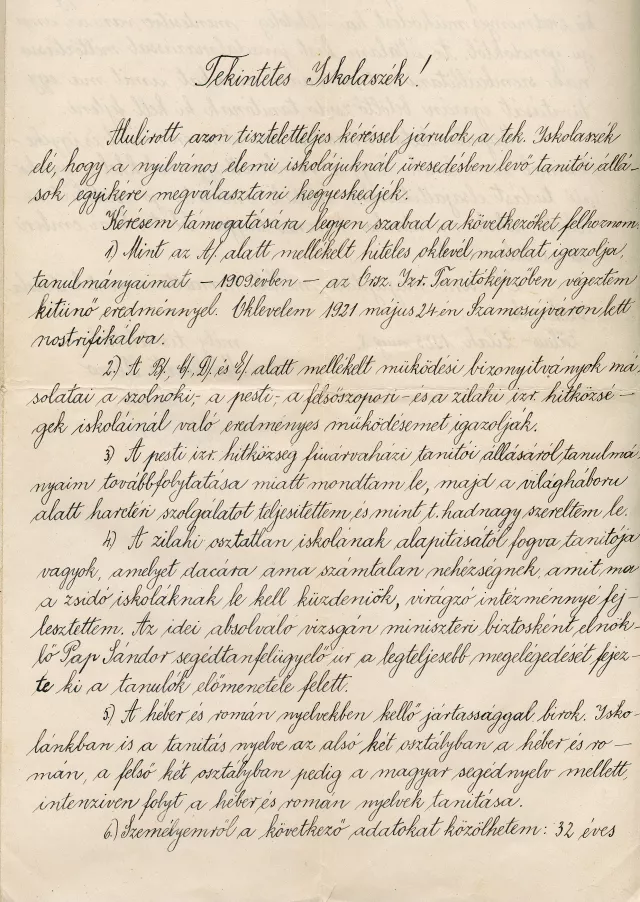 Tekintetes Iskolaszék!
Alulirott azon tiszteletteljes kéréssel járulok a tek. Iskolaszék
elé, hogy a nyilvános elemi iskolájuknál üresedésben levő tanitói állá-
sok egyikére megválasztani kegyeskedjék.
Kérésem támogatására legyen szabad a következőket felhoznom:
1) Mint az A/. alatt mellékelt hiteles oklevél másolat igazolja,
tanulmányaimat – 1909 évben – az Orsz. Izr. Tanitóképzőben végeztem
kitünő eredménnyel. Oklevelem 1921 május 24-én Szamosújváron lett
nostrifikálva.
2.) A B/., C/., D/. és E/. alatt mellékelt működési bizonyitványok má-
solatai a szolnoki,- a pesti,- a felsőszopori- és a zilahi izr. hitközsé-
gek iskoláinál való eredményes működésemet igazolják.
3) A pesti izr. hitközség fiuárvaházi tanitói állásáról, tanulmá-
nyaim továbbfolytatása miatt mondtam le, majd a világháboru
alatt harctéri szolgálatot teljesitettem és mint t. hadnagy szereltem le.
4.) A zilahi osztatlan iskolának alapitásától fogva tanitója
vagyok, amelyet dacára ama számtalan nehézségnek, amit ma
a zsidó iskoláknak le kell küzdeniök, virágzó intézménnyé fej-
lesztettem. Az idei absolváló vizsgán miniszteri biztosként elnök-
lő Pap Sándor segédtanfelügyelő úr a legteljesebb megelégedését fejez-
te ki a tanulók előmenetele felett.
5) A héber és román nyelvekben kellő jártassággal birok. Isko-
lánkban is a tanitás nyelve az alsó két osztályban a héber és ro-
mán, a felső két osztályban pedig a magyar segédnyelv mellett,
intenziven folyt a héber és román nyelvek tanitása.
6.) Személyemről a következő adatokat közölhetem: 32 éves